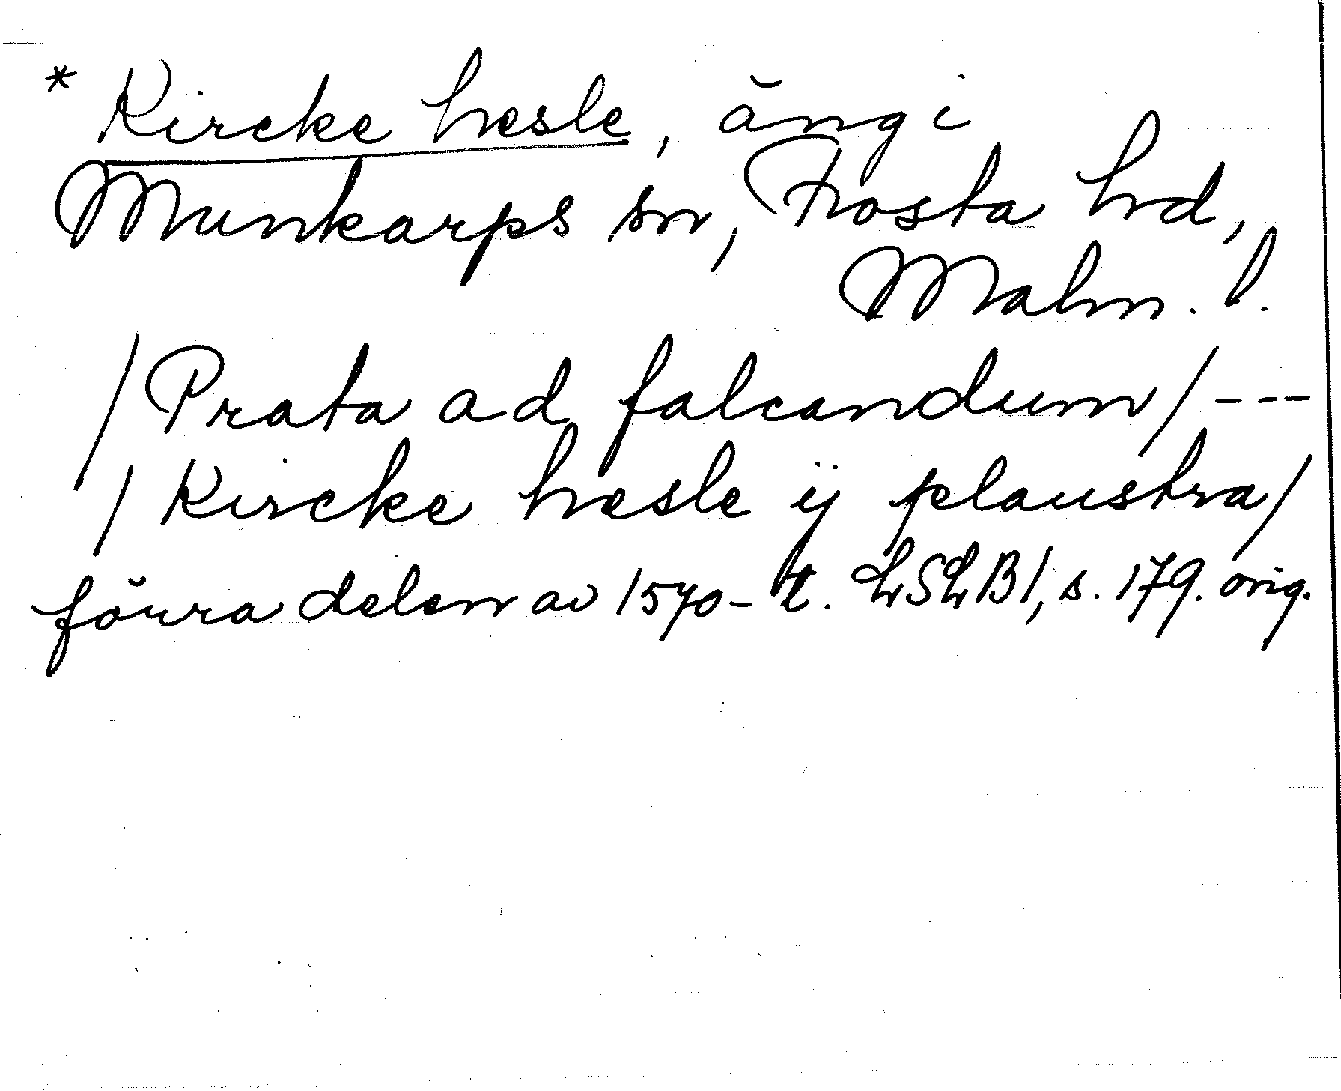 * Kircke hesle, äng i
Munkarps sn, Frosta hd,
Malm. l.
/Prata ad falcandum/ ---
/Kircke hesle ij plaustra/
förra delen av 1570-t. LSLB I, s. 179. orig.